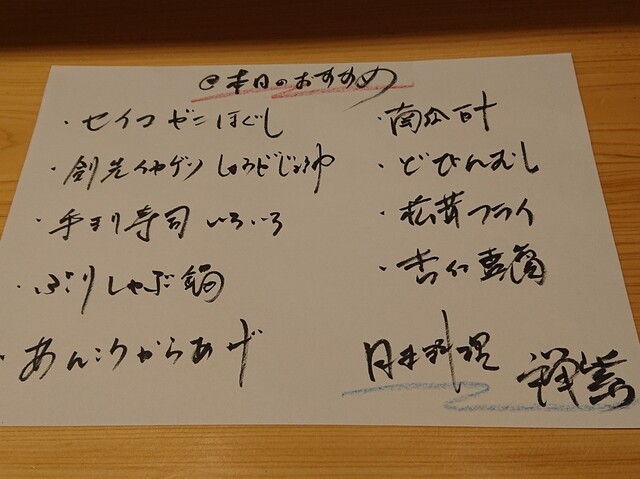 本日のおすすめ
・セイコガニほぐし
・剣先イカゲソしょうがじょうゆ
・手まり寿司いろいろ
・ぶりしゃぶ鍋
・あんこうからあげ
・南瓜
・どびんむし
・松茸フライ
・杏仁豆腐
日本料理